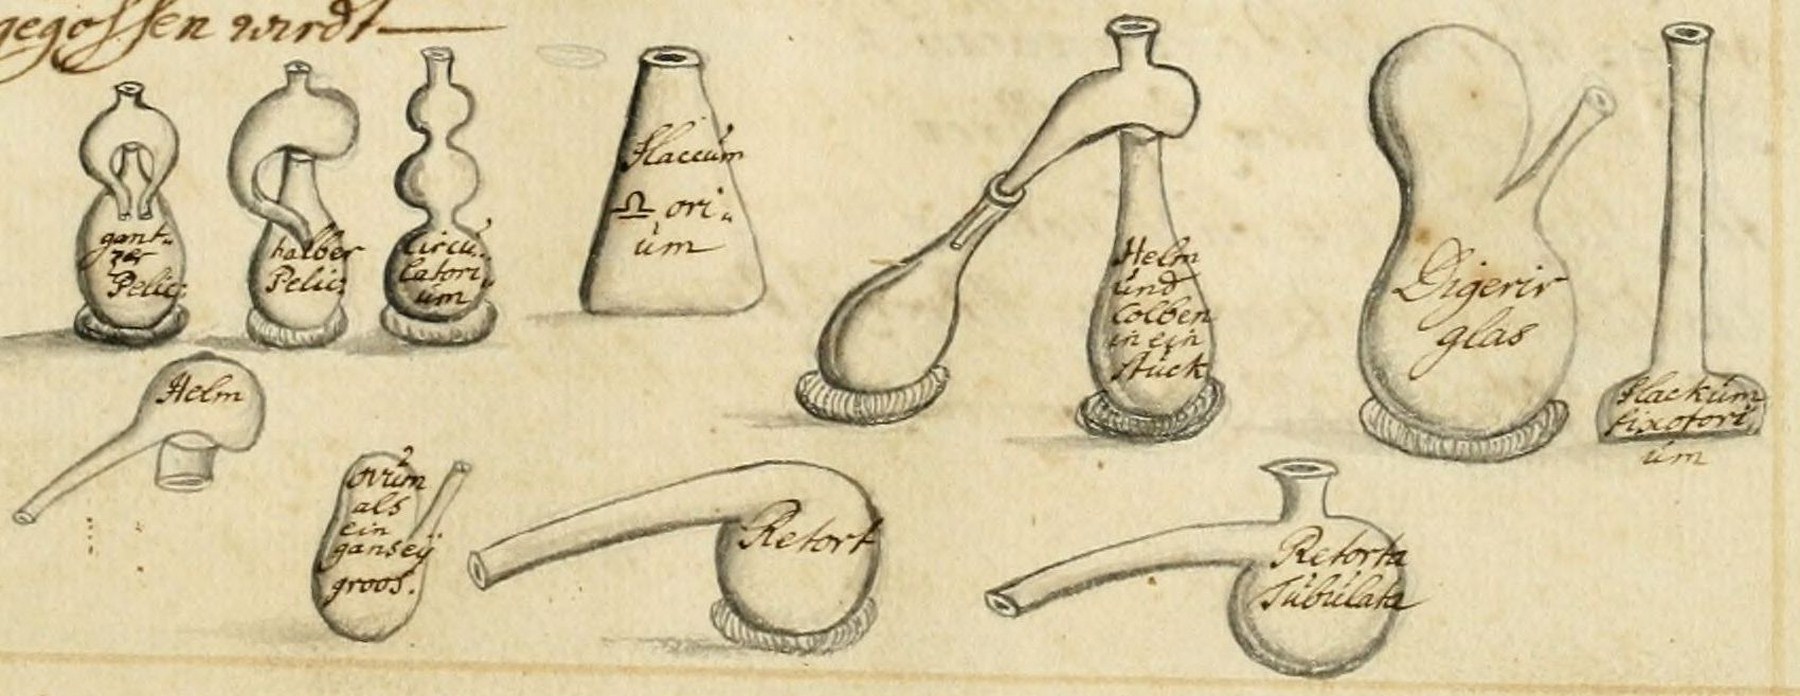 gegossen wirdt
gant-
zer
Pelic:
halber
Pelic:
Circu-
latori-
um
Flaccum
♎ ori-
um
Helm
und
Colben
in ein
stuck
Digerir
glas
Flackum
fixotori
um
Helm
ovum
als
ein
ganseÿ
groos.
Retort
Retorta
Tubulata